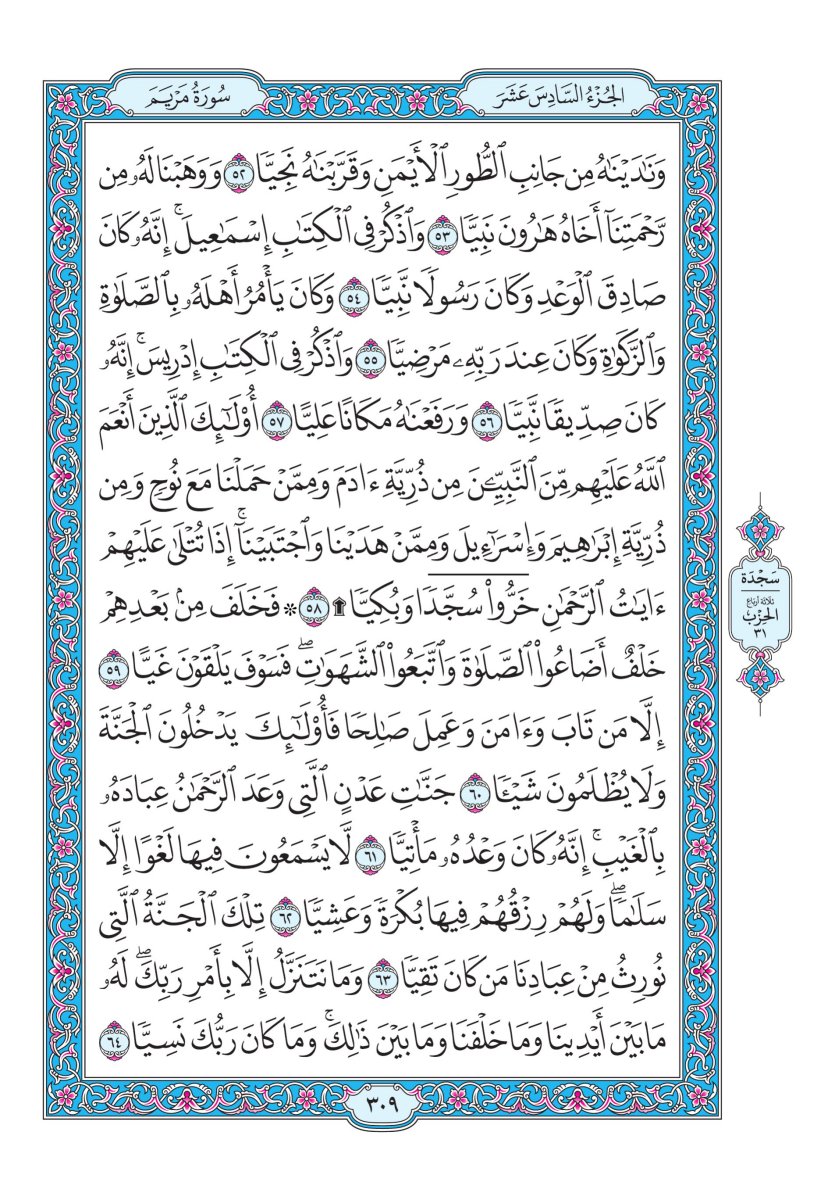 الجُزْءُ السَّادِسَ عَشَرَ
سُورَةُ مَرْيَمَ
وَنَٰدَيْنَٰهُ مِن جَانِبِ ٱلطُّورِ ٱلْأَيْمَنِ وَقَرَّبْنَٰهُ نَجِيًّا ٥٢ وَوَهَبْنَا لَهُۥ مِن
رَّحْمَتِنَآ أَخَاهُ هَٰرُونَ نَبِيًّا ٥٣ وَٱذْكُرْ فِي ٱلْكِتَٰبِ إِسْمَٰعِيلَۚ إِنَّهُۥ كَانَ
صَادِقَ ٱلْوَعْدِ وَكَانَ رَسُولًا نَّبِيًّا ٥٤ وَكَانَ يَأْمُرُ أَهْلَهُۥ بِٱلصَّلَوٰةِ
وَٱلزَّكَوٰةِ وَكَانَ عِندَ رَبِّهِۦ مَرْضِيًّا ٥٥ وَٱذْكُرْ فِي ٱلْكِتَٰبِ إِدْرِيسَۚ إِنَّهُۥ
كَانَ صِدِّيقًا نَّبِيًّا ٥٦ وَرَفَعْنَٰهُ مَكَانًا عَلِيًّا ٥٧ أُوْلَٰٓئِكَ ٱلَّذِينَ أَنْعَمَ
ٱللَّهُ عَلَيْهِم مِّنَ ٱلنَّبِيِّۦنَ مِن ذُرِّيَّةِ ءَادَمَ وَمِمَّنْ حَمَلْنَا مَعَ نُوحٍ وَمِن
ذُرِّيَّةِ إِبْرَٰهِيمَ وَإِسْرَٰٓءِيلَ وَمِمَّنْ هَدَيْنَا وَٱجْتَبَيْنَآۚ إِذَا تُتْلَىٰ عَلَيْهِمْ
ءَايَٰتُ ٱلرَّحْمَٰنِ خَرُّواْ سُجَّدًا وَبُكِيًّا۩ ٥٨ ۞ فَخَلَفَ مِنۢ بَعْدِهِمْ
خَلْفٌ أَضَاعُواْ ٱلصَّلَوٰةَ وَٱتَّبَعُواْ ٱلشَّهَوَٰتِۖ فَسَوْفَ يَلْقَوْنَ غَيًّا ٥٩
إِلَّا مَن تَابَ وَءَامَنَ وَعَمِلَ صَٰلِحًا فَأُوْلَٰٓئِكَ يَدْخُلُونَ ٱلْجَنَّةَ
وَلَا يُظْلَمُونَ شَيْـًٔا ٦٠ جَنَّٰتِ عَدْنٍ ٱلَّتِي وَعَدَ ٱلرَّحْمَٰنُ عِبَادَهُۥ
بِٱلْغَيْبِۚ إِنَّهُۥ كَانَ وَعْدُهُۥ مَأْتِيًّا ٦١ لَّا يَسْمَعُونَ فِيهَا لَغْوًا إِلَّا
سَلَٰمًاۖ وَلَهُمْ رِزْقُهُمْ فِيهَا بُكْرَةً وَعَشِيًّا ٦٢ تِلْكَ ٱلْجَنَّةُ ٱلَّتِي
نُورِثُ مِنْ عِبَادِنَا مَن كَانَ تَقِيًّا ٦٣ وَمَا نَتَنَزَّلُ إِلَّا بِأَمْرِ رَبِّكَۖ لَهُۥ
مَا بَيْنَ أَيْدِينَا وَمَا خَلْفَنَا وَمَا بَيْنَ ذَٰلِكَۚ وَمَا كَانَ رَبُّكَ نَسِيًّا ٦٤
سَجْدَة
ثلاثة أرباع
الحِزْب
٣١
٣٠٩